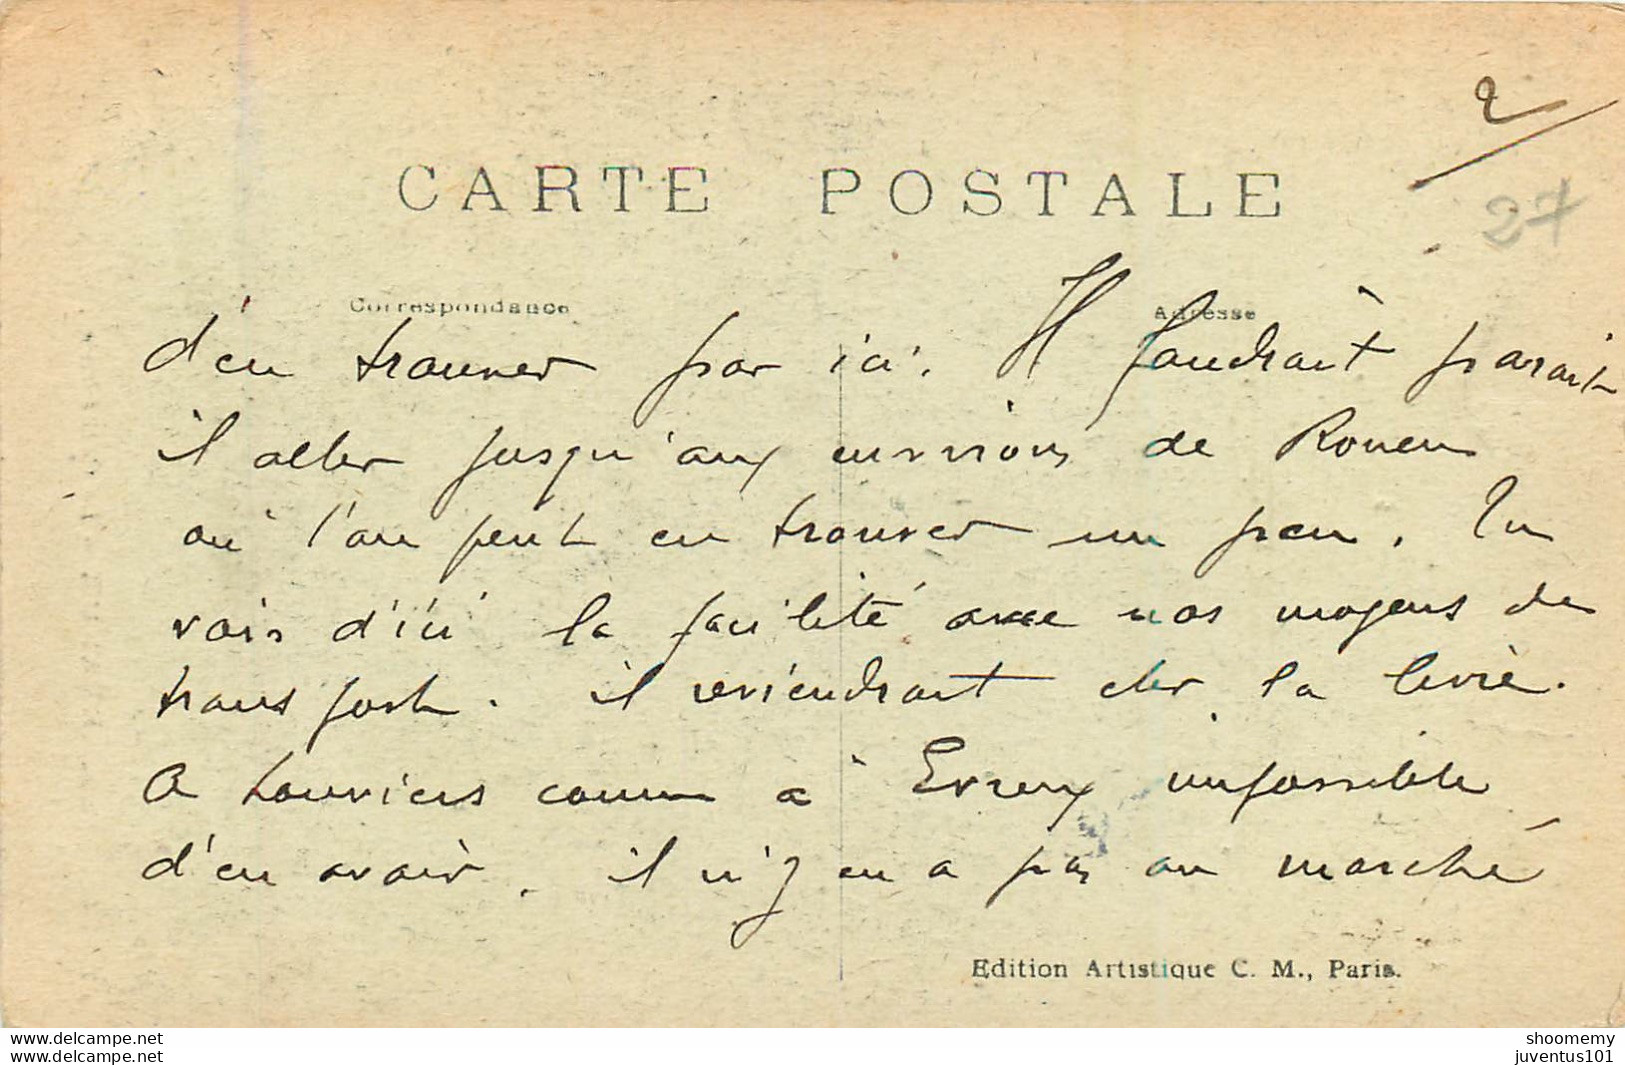 2
CARTE POSTALE
27
Correspondance
Adresse
d'en trouver par ici. Il faudrait parait
il aller jusqu'aux environs de Rouen
où l'on peut en trouver un peu. Tu
vois d'ici la facilité avec nos moyens de
transport. il reviendrait cher la livre.
A Louviers comme à Evreux impossible
d'en avoir. il n'y en a pas au marché
Edition Artistique C. M., Paris.
delcampe.net
shoomemy
juventus101